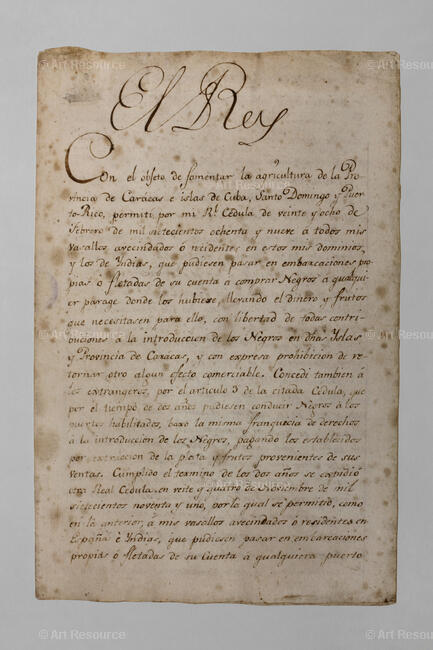 © Art Resource © Art Resource
El Rey
Con el objeto de fomentar la agricultura de la Pro-
vincia de Caracas e islas de Cuba, Santo Domingo y Puer-
to-Rico, permiti por mi Rl. Cédula de veinte y ocho de
Febrero de mil setecientos ochenta y nueve á todos mis
vasallos avecindados ó recidentes en estos mis dominios,
y los de Yndias, que pudiesen pasar en embarcaciones pro-
pias ó fletadas de su cuenta a comprar Negros a qualqui-
er parage donde los hubiese, llevando el dinero y frutos
que necesitasen para ello, con libertad de todas contri-
buciones á la introduccion de los Negros en dhas Yslas
y Provincia de Caracas, y con expresa prohibicion de re-
tornar otro algun efecto comerciable. Concedí tambien á
los extrangeros, por el articulo 3 de la citada Cédula, que
por el tiempo de dos años pudiesen conducir Negros á los
puertos habilitados, baxo la misma franquicia de derechos
á la introduccion de los Negros, pagando los establecidos
por extraccion de la plata y frutos provenientes de sus
ventas. Cumplido el termino de los dos años se expidió
otra Real Cedula en veite y quatro de Noviembre de mil
setecientos noventa y uno, por la qual se permitió, como
en la anterior, á mis vasallos avecindados ó residentes en
España é Yndias, que pudiesen pasar en embarcaciones
propias ó fletadas de su Cuenta á qualquiera puerto
© Art Resource © Art Resource